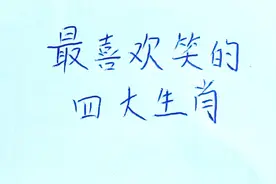 最喜欢笑的
四大生肖